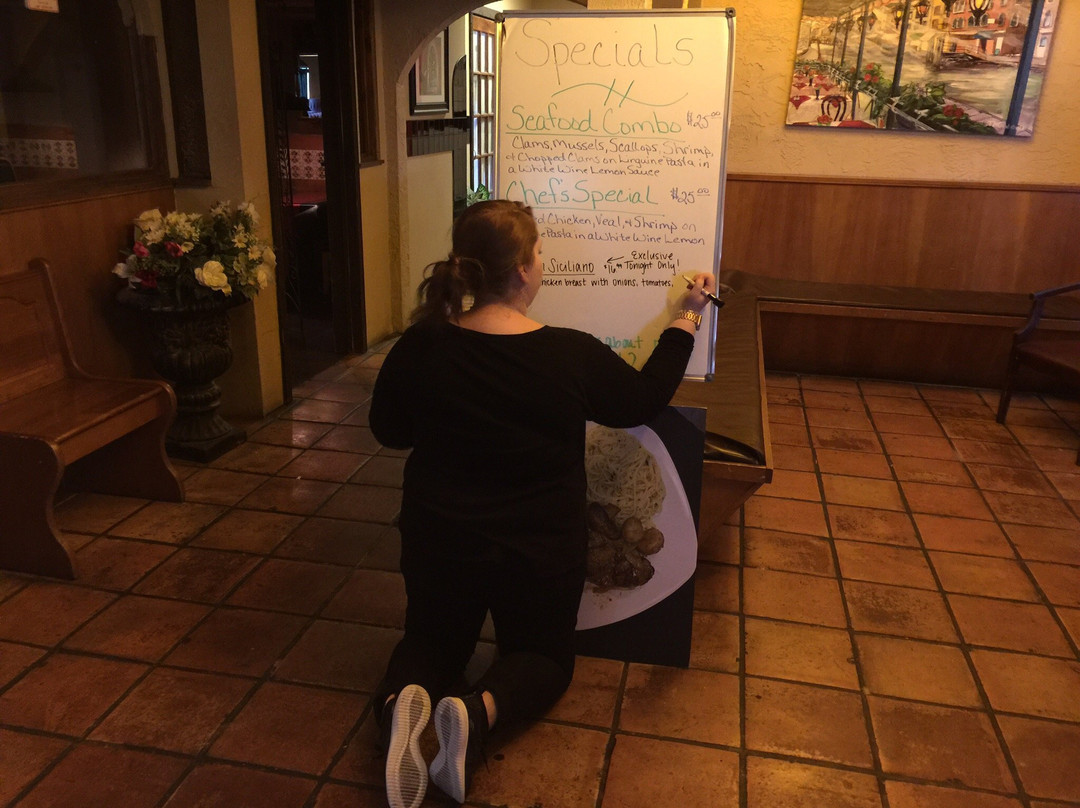 Specials
Seafood Combo $25.00
Clams, Mussels, Scallops, Shrimp,
& Chopped Clams on Linguine Pasta in
a White Wine Lemon Sauce
Chef's Special $25.00
Chicken, Veal, & Shrimp on
Pasta in a White Wine Lemon
Exclusive
Siciliano Tonight Only!
breast with onions, tomatoes,
about